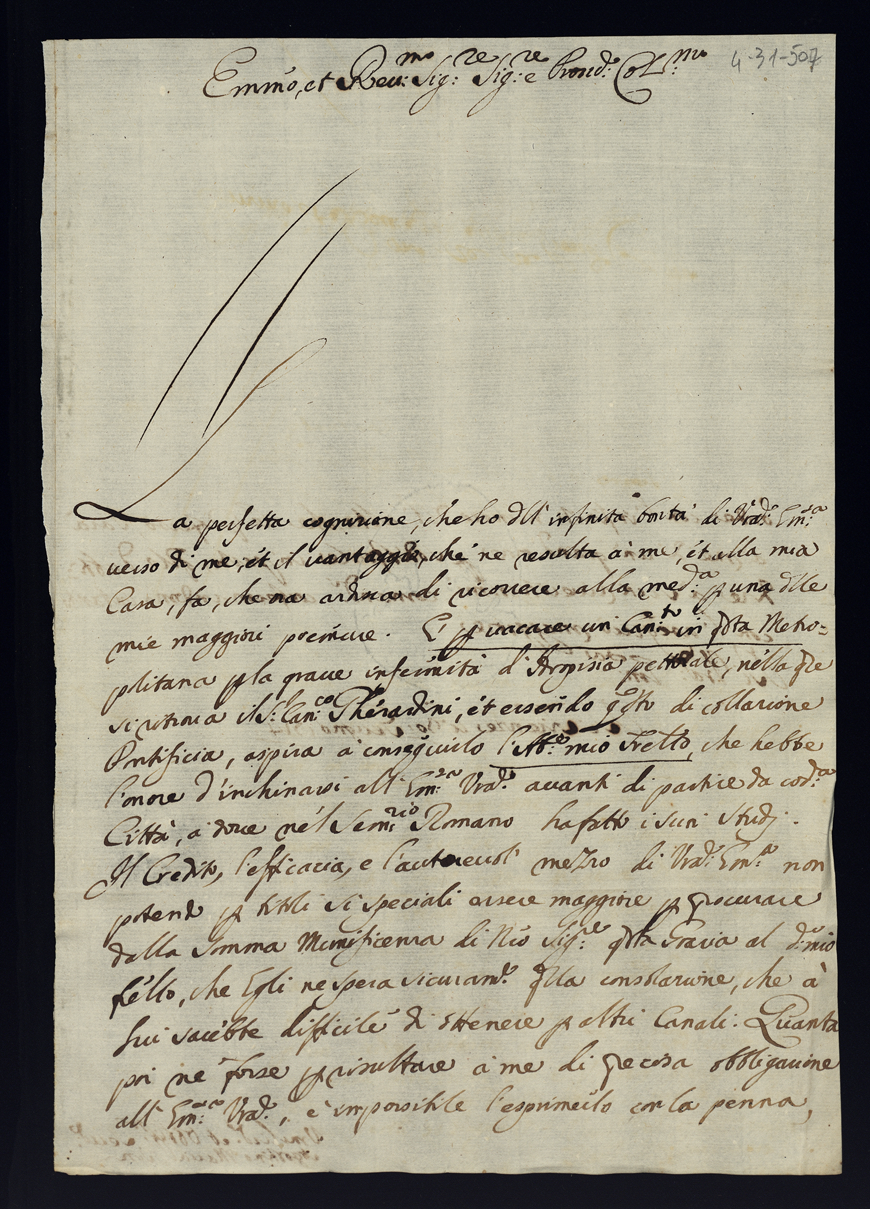 4-31-507
Emmo, et Reu:mo Sig:re Sig:re Prone Col:mo
La perfetta cognizione, che ho dell' infinita bontà di Vra Em:a
verso di me, ét il vantaggio, che ne resulta à me, ét alla mia
Casa, fa, che ma ardisca di ricorrere alla med:a p una dlle
mie maggiori premure. E' p vacare un Can:to in qta Metro=
politana p la graue infermità d'Itropisia pettorale, nélla qle
si ritroua il S:r Can:co Gherardini, ét essendo qsto di collazione
Pontificia, aspira à conseguirlo l'Abe mio Frello, che hebbe
l'onore d'inchinarsi all' Em:za Vra auanti di partire da cod:a
Città, à doue nél Sem:rio Romano ha fatto i suoi studj.
Il Credito, l'efficacia, e l'autoreuol' mezzo di Vra Em:a non
potendo p titoli sì speciali essere maggiore p procurare
dalla somma Munificenza di Nro Sig:re qta Grazia al do mio
frello, che Egli ne spera sicuram:te qlla consolazione, che à
Lui sarébbe difficilé di ottenere p altri Canali. Quanta
poi né forse p risultare à me di preciosa obbligazione
all' Em:za Vra, è impossibile l'esprimerlo con la penna,